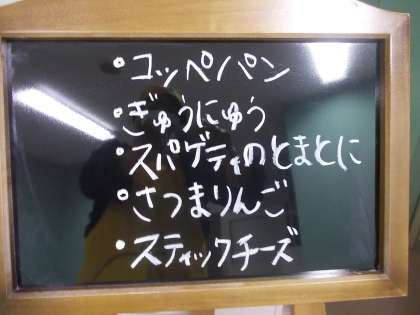 ・コッペパン
・ぎゅうにゅう
・スパゲティのとまとに
・さつまりんご
・スティックチーズ